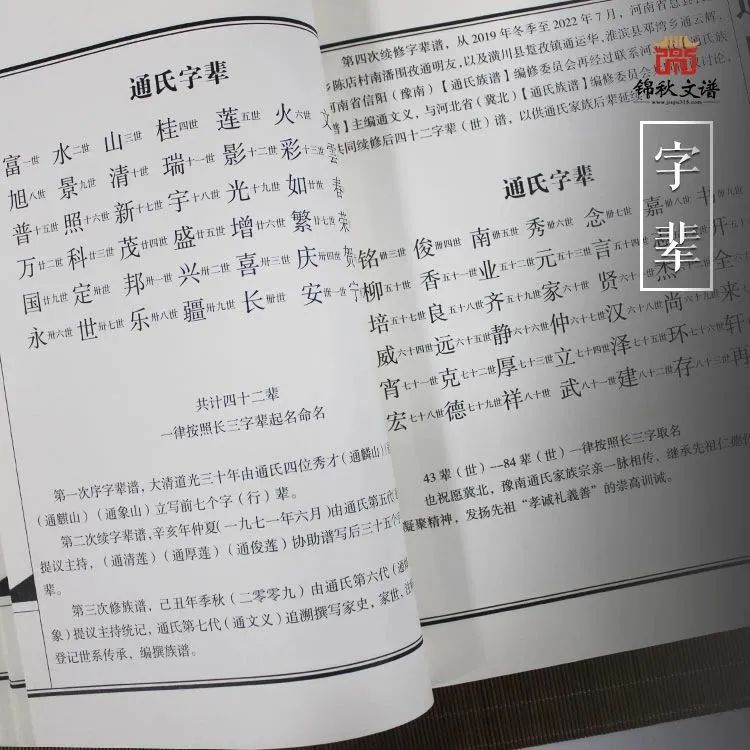 通氏字辈
富一世 水二世 山三世 桂四世 莲五世 火六世 文
旭八世 景九世 清十世 瑞十一世 影十二世 彩十三世 雲
普十五世 照十六世 新十七世 宇十八世 光十九世 如廿世 春
万廿二世 科廿三世 茂廿四世 盛廿五世 增廿六世 繁廿七世 荣
国廿九世 定卅世 邦卅一世 兴卅二世 喜卅三世 庆卅四世 贺
永卅六世 世卅七世 乐卅八世 疆卅九世 长卌世 安卌一世 宁
共计四十二辈
一律按照长三字辈起名命名
第一次序字辈谱，大清道光三十年由通氏四位秀才（通麟山）
（通麒山）（通象山）立写前七个字（行）辈。
第二次续字辈谱，辛亥年仲夏（一九七一年六月）由通氏第五代
提议主持，（通清莲）（通厚莲）（通俊莲）协助谱写后三十五个字
辈。
第三次修族谱，己丑年季秋（二零零九）由通氏第六代（通
象）提议主持统记，通氏第七代（通文义）追溯撰写家史，家世，
登记世系传承，编撰族谱。
第四次续修字辈谱，从2019年冬季至2022年7月，河南省息县
乡陈店村南潘围孜通明友，以及潢川县踅孜镇通运华，淮滨县邓湾乡通云辉、
河南省信阳（豫南）【通氏族谱】编修委员会再经过联系河
谱】主编通文义，与河北省（冀北）【通氏族谱】编修委员会
共同续修后四十二字辈（世）谱，以供通氏家族后辈延续
通氏字辈
铭卌三世 俊卌四世 南卌五世 秀卌六世 念卌七世 嘉卌八世 书卌九世
柳 香五十一世 业五十二世 元五十三世 言五十四世 开
培五十七世 良五十八世 齐五十九世 家六十世 贤 杰 全
威六十四世 远六十五世 静六十六世 仲六十七世 汉六十八世 尚六十九世 来
宵七十一世 克七十二世 厚七十三世 立七十四世 泽七十五世 环七十六世 轩
宏七十八世 德七十九世 祥八十世 武八十一世 建八十二世 存八十三世 再
43辈（世）—84辈（世）一律按照长三字取名
也祝愿冀北，豫南通氏家族宗亲一脉相传，继承先祖仁德
凝聚精神，发扬先祖“孝诚礼義善”的崇高训诫。
锦秋文谱
www.jiapu315.com
字辈